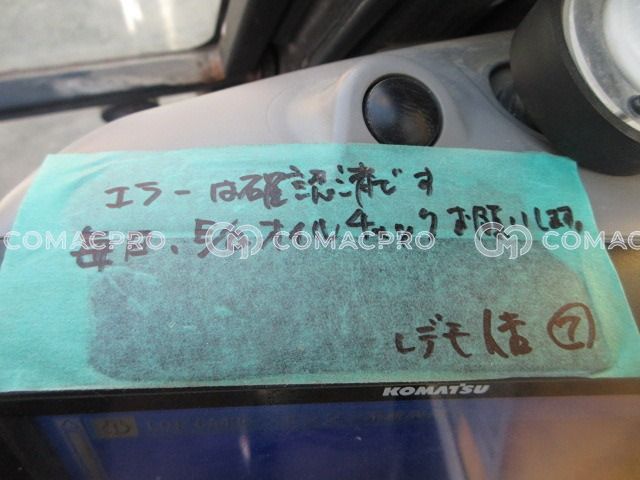 エラーは確認済です
毎日、オイルチェックお願いします。
COMACPRO COMACPRO COMACPRO COMACPRO
レデモ
⑦
KOMATSU